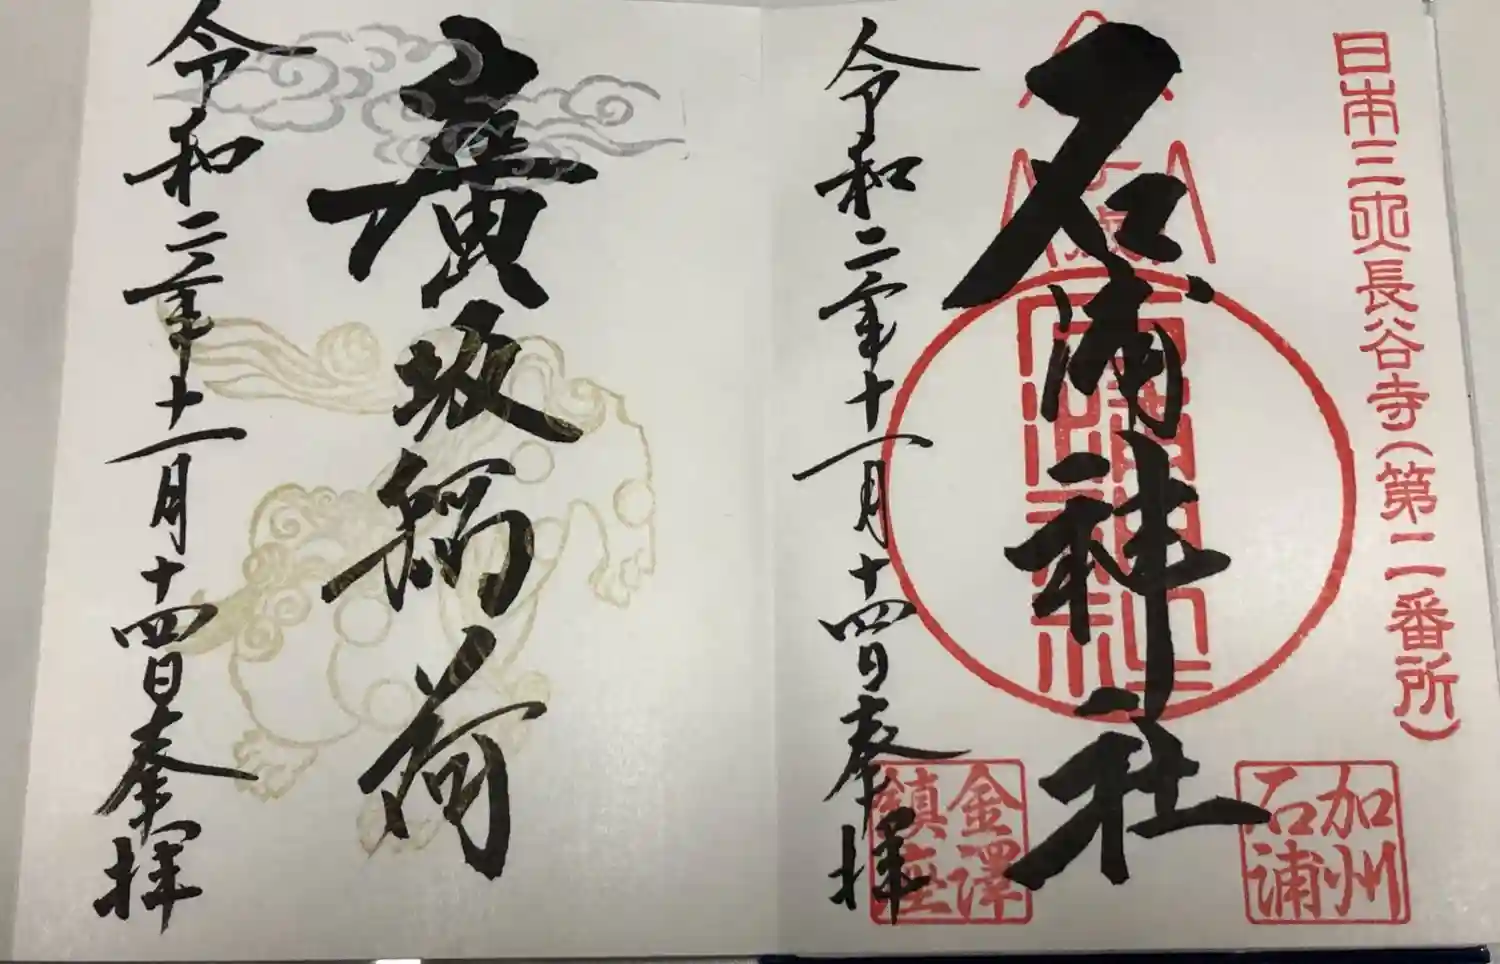 日本三大長谷寺(第二番所)
石浦神社
加州
石浦
金澤
鎮座
令和二年十一月十四日奉拝
廣坂稲荷
令和二年十一月十四日奉拝